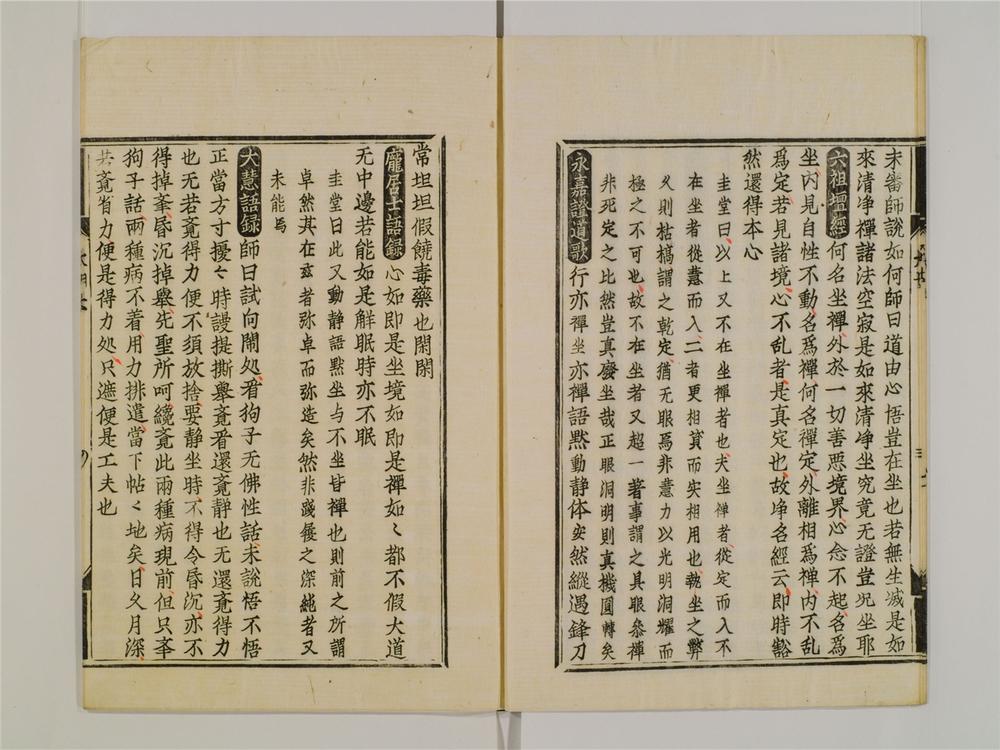 未審師說如何師曰道由心悟豈在坐也若無生滅是如
來清净禪諸法空寂是如來清净坐究竟无證豈况坐耶
六祖壇經何名坐禪外於一切善悪境界心念不起名爲
坐内見自性不動名爲禪何名禪定外離相爲禅内不乱
爲定若見諸境心不乱者是真定也故净名經云即時豁
然還得本心
圭堂曰以上又不在坐禪者也夫坐禅者從定而入不
在坐者從慧而入二者更相資而实相用也執坐之弊
久則枯槁謂之乾定猶无眼焉非慧力以光明洞耀而
極之不可也故不在坐者又超一著事謂之具眼叅禪
非死定之比然豈真廢坐哉正眼洞明則真機圓轉矣
永嘉證道歌行亦禪坐亦禪語黙動静体安然縱遇鋒刀
常坦坦假饒毒藥也閑閑
龐居士語録心如即是坐境如即是禪如〻都不假大道
无中邊若能如是解眠時亦不眠
圭堂曰此又動静語黙坐与不坐皆禪也則前之所謂
卓然其在玆者弥卓而弥造矣然非踐履之深純者又
未能焉
大慧語録師曰試向閙処看狗子无佛性話未說悟不悟
正當方寸擾〻時謾提撕舉覔看還覔静也无還覔得力
也无若覔得力便不須放捨要静坐時不得令昏沉亦不
得掉㪯昏沉掉㪯先聖所呵纔覔此兩種病現前但只㪯
狗子話兩種病不着用力排遣當下帖〻地矣日久月深
共覔省力便是得力処只遮便是工夫也